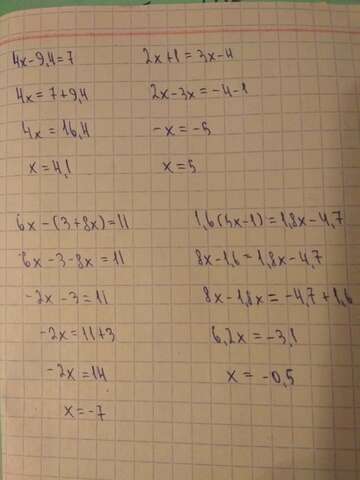 4x-9,4=7
4x=7+9,4
4x=16,4
x=4,1
2x+1=3x-4
2x-3x=-4-1
-x=-5
x=5
6x-(3+8x)=11
6x-3-8x=11
-2x-3=11
-2x=11+3
-2x=14
x=-7
1,6(5x-1)=1,8x-4,7
8x-1,6=1,8x-4,7
8x-1,8x=-4,7+1,6
6,2x=-3,1
x=-0,5